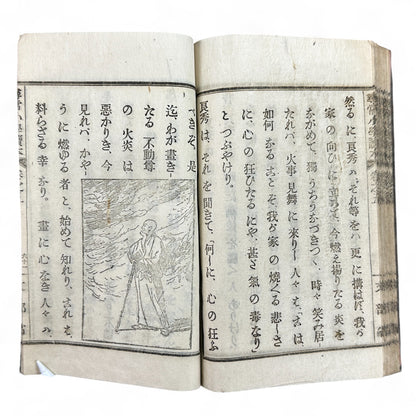 然るに良秀ハ、それ等をバ更に構はず、我が
家の向ひに立ちて、今燃え揚りたる炎を
ながめて、獨りうちうなづきつゝ、時々笑み居
たれバ、火事見舞に來りし人々も、こは
如何なることぞ我が家の燒くる悲しさ
に、心の狂ひたるにや、甚だ氣の毒なり
とつぶやけり。
良秀は、それを聞きて、何しに、心の狂ふ
べきぞ、是
迄、わが畫き
たる不動尊
の火炎は
惡かりき、今
見れバ、かや
うに燃ゆる者と、始めて知れり、これも、
料らざる幸なり。畫に心なき人々ハ、